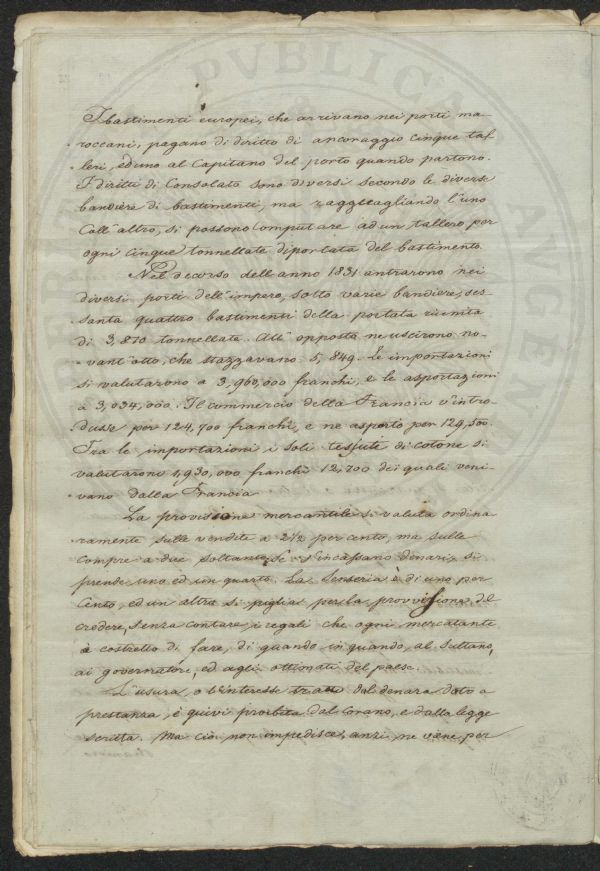 I bastimenti europei, che arrivano nei porti ma-
roccani, pagano di diritto di ancoraggio cinque tal-
leri, ed uno al Capitano del porto quando partono.
I diritti di Consolato sono diversi secondo le diverse
bandiere di bastimenti, ma ragguagliando l'uno
Coll'altro, si possono computare ad un tallero per
ogni cinque tonnellate di portata del bastimento.
Nel decorso dell'anno 1831 entrarono nei
diversi porti dell'impero, sotto varie bandiere, ses-
santa quattro bastimenti della portata riunita
di 3,810 tonnellate. All'opposto ne uscirono no-
vant'otto, che stazzavano 5,849. Le importazioni
si valutarono a 3,960,000 franchi, e le asportazioni
a 3,034,000. Il commercio della Francia v'intro-
dusse per 124,700 franchi, e ne asportò per 129,500.
Tra le importazioni i soli tessuti di cotone si
valutarono 1,930,000 franchi 12,700 dei quali veni-
vano dalla Francia
La provisione mercantile si valuta ordina-
ramente sulle vendite a 2 1/2 per cento, ma sulle
compre a due soltanto, Se s'incassano denari, si
prende uno ed un quarto. La Senseria è di uno per
Cento, ed un altro si piglia per la provvisione, del
credere, senza contare, i regali che ogni mercatante
è costretto di fare, di quando in quando, al Sultano,
ai governatori, ed agli ottimati del paese.
L'usura, o l'interesse tratto dal denaro dato a
prestanza, è quivi proibita dal Corano, e dalla legge
scritta. Ma ciò non impedisce, anzi, ne viene per